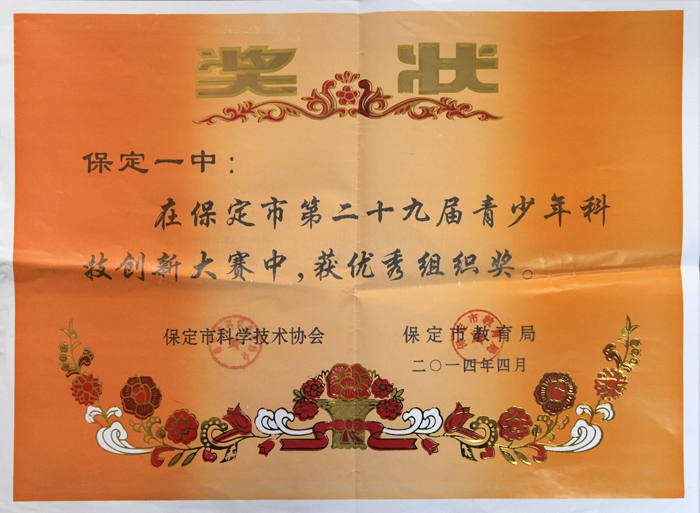 奖状
保定一中：
在保定市第二十九届青少年科
技创新大赛中，获优秀组织奖。
保定市科学技术协会
保定市教育局
二〇一四年四月